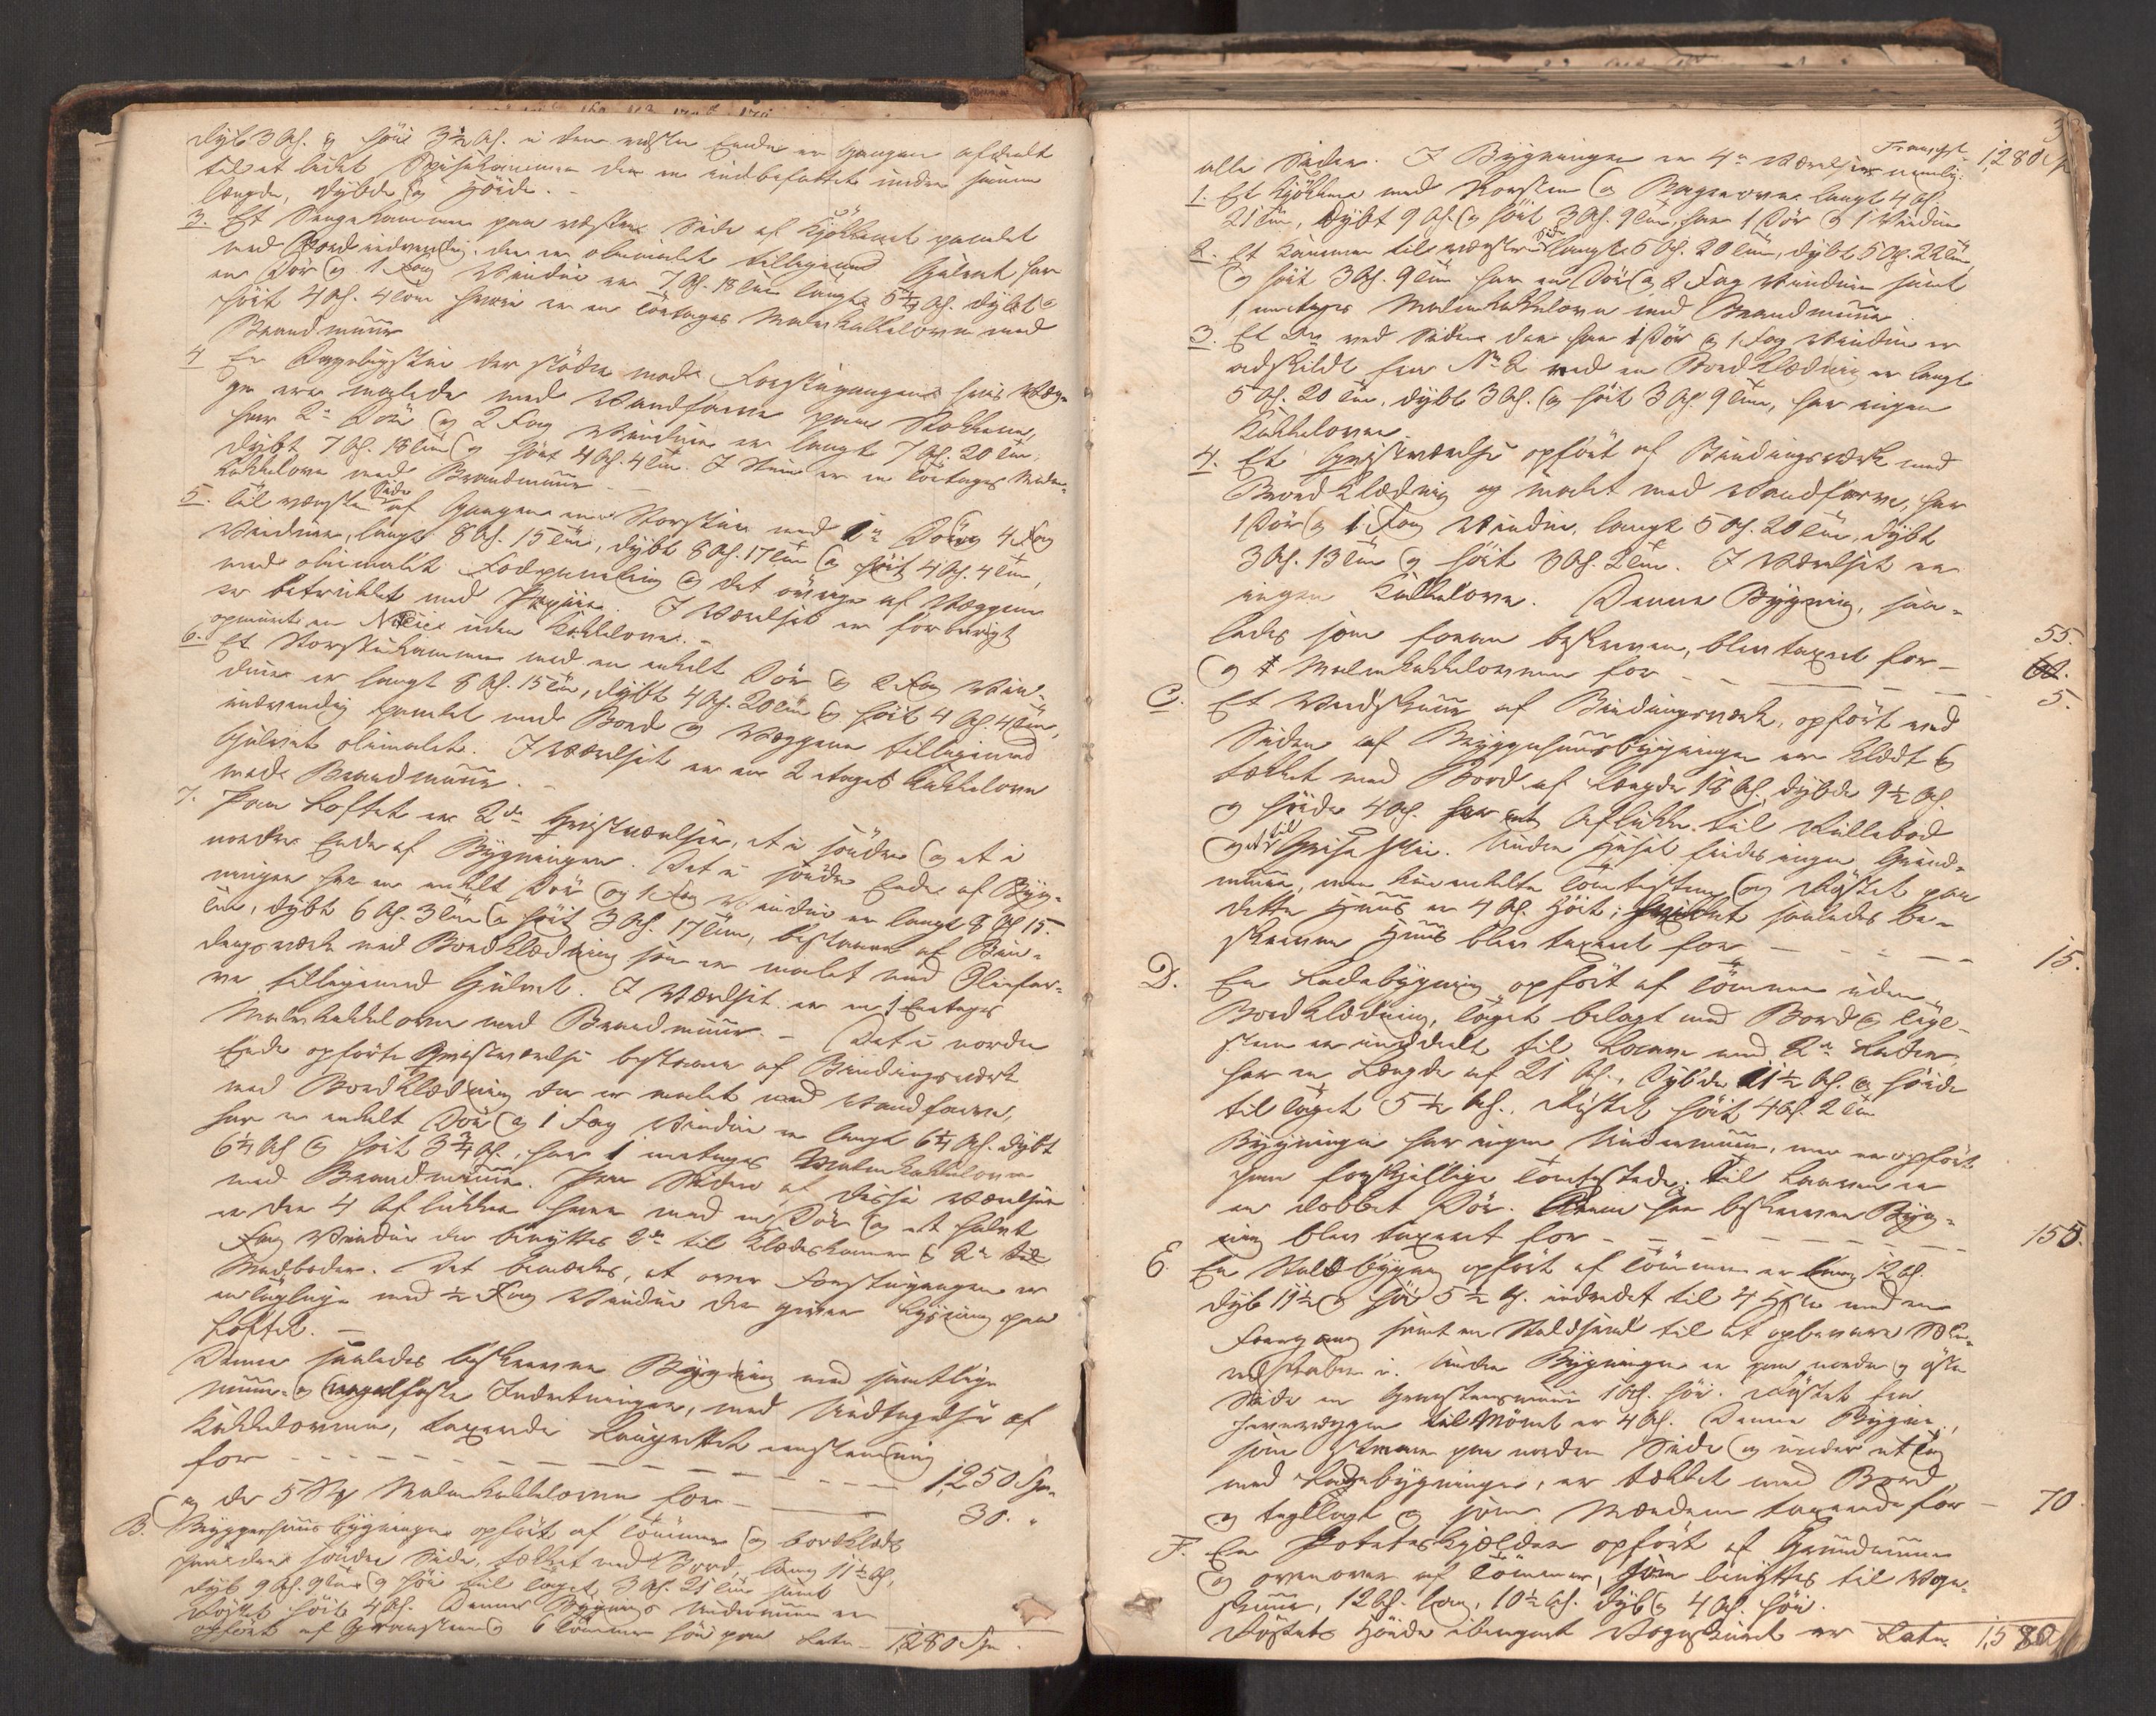 dyb 3 Al. & höi 3½ Al. i den vestre Ende er Gangen afdeelt
til et lidet Spisekammer der er indbefattet under samme
Længde, Dybde og Höide. -
3. Et Sengekammer paa vestre Side af Kjökkenet panelet
med Bord indvendig, der er oliemalet tilligemed Gulvet har
en Dör og 1 Fag Vindue er 7 Al. 18 Tm langt 5¼ Al. dybt &
höit 4 Al. 4 Tom hvori er en toetages Malmkakkelovn med
Brandmuur
4 En Dagligstue der stöder mod Forstuegangen hvis Væg-
ge ere malede med Vandfarve paa Stokkene,
har 2de Döre og 2 Fag Vinduer er langt 7 Al. 20 Tm,
dybt 7 Al. 18 Tm og höit 4 Al. 4 Tm. I Stuen er en toetages Malm-
kakkelovn med Brandmuur -
5. Til venstre Side af Gangen en Storstue med 1 Dör og 4 Fag
Vinduer, langt 8 Al. 15 Tm, dybt 8 Al. 17 Tm og höit 4 Al. 4 Tm,
med oliemalet Fodpaneling og det övrige af Væggene
er betrukket med Papiir. I Værelset er forövrigt
opmuret en Niche uden Kakkelovn. -
6. Et Storstuekammer med en enkelt Dör og 2 Fag Vin-
duer er langt 8 Al. 15 Tm, dybt 4 Al. 20 Tm & höit 4 Al. 4 Tm,
indvendig panelet med Bord og Væggene tilligemed
Gulvet oliemalet. I Værelset er en 2 etages Kakkelovn
med Brandmuur. -
7. Paa Loftet er 2de Qvistværelser, et i söndre og et i
nordre Ende af Bygningen. Det i söndre Ende af Byg-
ningen har en enkelt Dör og 1 Fag Vindue er langt 8 Al 15
Tm, dybt 6 Al. 3 Tm og höit 3 Al. 17 Tm, bestaaende af Bin-
dingsværk med Bordklædning som er malet med Oliefar-
ve tilligemed Gulvet. I Værelset er en 1 Eenetages
Malmkakkelovn med Brandmuur. - Det i nordre
Ende opförte Qvistværelse bestaaer af Bindingsværk
med Bordklædning der er malet med Vandfarve,
har en enkelt Dör og 1 Fag Vindue er langt 6¼ Al. dybt
6¼ Al & höit 3¾ Al., har 1 eenetages Malmkakkelovn
med Brandmuur. Paa Siden af disse Værelser
er der 4 Aflukker hver med en Dör og et halvt
Fag Vindue der benyttes 2de til Klædeskamre & 2de til
Madboder. Det bemærkes, at over Forstuegangen er
en med ½ Fag Vindue der giver Lysning paa
Loftet. -
Denne saaledes beskrevne Bygning med samtlige
muur- og nagelfaste Indretninger, med Undtagelse af
Kakkelovnene, taxerede Laugrettet eenstemmig
for - - - - - - - - - - - - 1,250 Spd.
og de 5 Stk Malmkakkelovne for - - 30. "
B. Bryggerhuusbygningen opfört af Tömmer og bordklædt
paa den söndre Side, tækket med Bord, lang 11½ Al,
dyb 9 Al. 9 Tm & höi til Taget 3 Al. 21 Tm samt
Röstet höit 4 Al. Denne Bygnings Undermuur er
opfört af Graasteen & 6 Tommer höi paa Latr - 1,280 Spd.
3
Transpt. 1,280 Sp
alle Sider. I Bygningen er 4re Værelser nemlig:
1. Et Kjökken med Skorsteen og Bagerovn langt 4 Al.
21 Tm, dybt 9 Al. og höit 3 Al. 9 Tm, har 1 Dör & 1 Vindue
2. Et Kammer til venstre Side langt 5 Al. 20 Tm, dybt 5 Al. 22 Tm
og höit 3 Al. 9 Tm har en Dör og 2 Fag Vinduer samt
1 eenetages Malmkakkelovn med Brandmuur
3. Et Do ved Siden der har 1 Dör & 1 Fag Vindue er
adskildt fra No 2 ved en Bordklædning er langt
5 Al. 20 Tm, dybt 3 Al. og höit 3 Al. 9 Tm, har ingen
Kakkelovn
4. Et Qvistværelse opfört af Bindingsværk med
Bordklædning og malet med Vandfarve, har
1 Dör og 1 Fag Vindue, langt 5 Al. 20 Tm, dybt
3 Al. 13 Tm og höit 3 Al. 2 Tm. I Værelset er
ingen Kakkelovn. Denne Bygning, saa-
ledes som foran beskreven, blev taxeret for - 55.
og 1 Malmkakkelovn for - - - - 5.
C. Et Vedskuur af Bindingsværk, opfört ved
Siden af Bryggerhuusbygningen er klædt &
tækket med Bord af Længde 18 Al, dybde 9½ Al.
og höide 4 Al. har et Aflukke til Rullebod
og et til Grisestie. Under Huset findes ingen Grund-
muur, men kun enkelte Tomtesteen og Röstet paa
dette Huus er 4 Al. höit; hvilket saaledes be-
skrevne Huus blev taxeret for - - - - 15.
D. En Ladebygning opfört af Tömmer uden
Bordklædning, Taget belagt med Bord & Tagl-
steen er inddeelt til Laave med 2de Lader,
har en Længde af 21 Al., Dybde 11½ Al. & höide
til Taget 5½ Al., Röstet höit 4 Al. 2 Tm
Bygningen har ingen Undermuur, men er opfört
paa forskjellige Tomtestene. Til Laaven er
en dobbet Dör. Denne her beskrevne Byg-
ning blev taxeret for - - - - - - - 155.
E. En Staldbygning opfört af Tömmer er lang 12 Al.
dyb 11½ og höi 5½ Al. indredet til 4 Heste med en
Foergang samt en Staldsval til at opbevare Sæle-
redskaber i. Under Bygningen er paa nordre og östre
Side en Graasteensmuur 1 Al. höi. Röstet fra
til Mönet er 4 Al. Denne Bygning,
som staaer paa nordre Side og under et Tag
med Ladebygningen, er tækket med Bord
og tegllagt & som Mændene taxerede for - 70.
F. En Potateskjelder opfört af Grundmuur
og ovenover af Tömmer, som benyttes til Vogn-
skuur, 12 Al. lang, 10½ Al. dyb & 4 Al. höi.
Röstets Höide iberegnet Vognskuret er Latr. 1,580